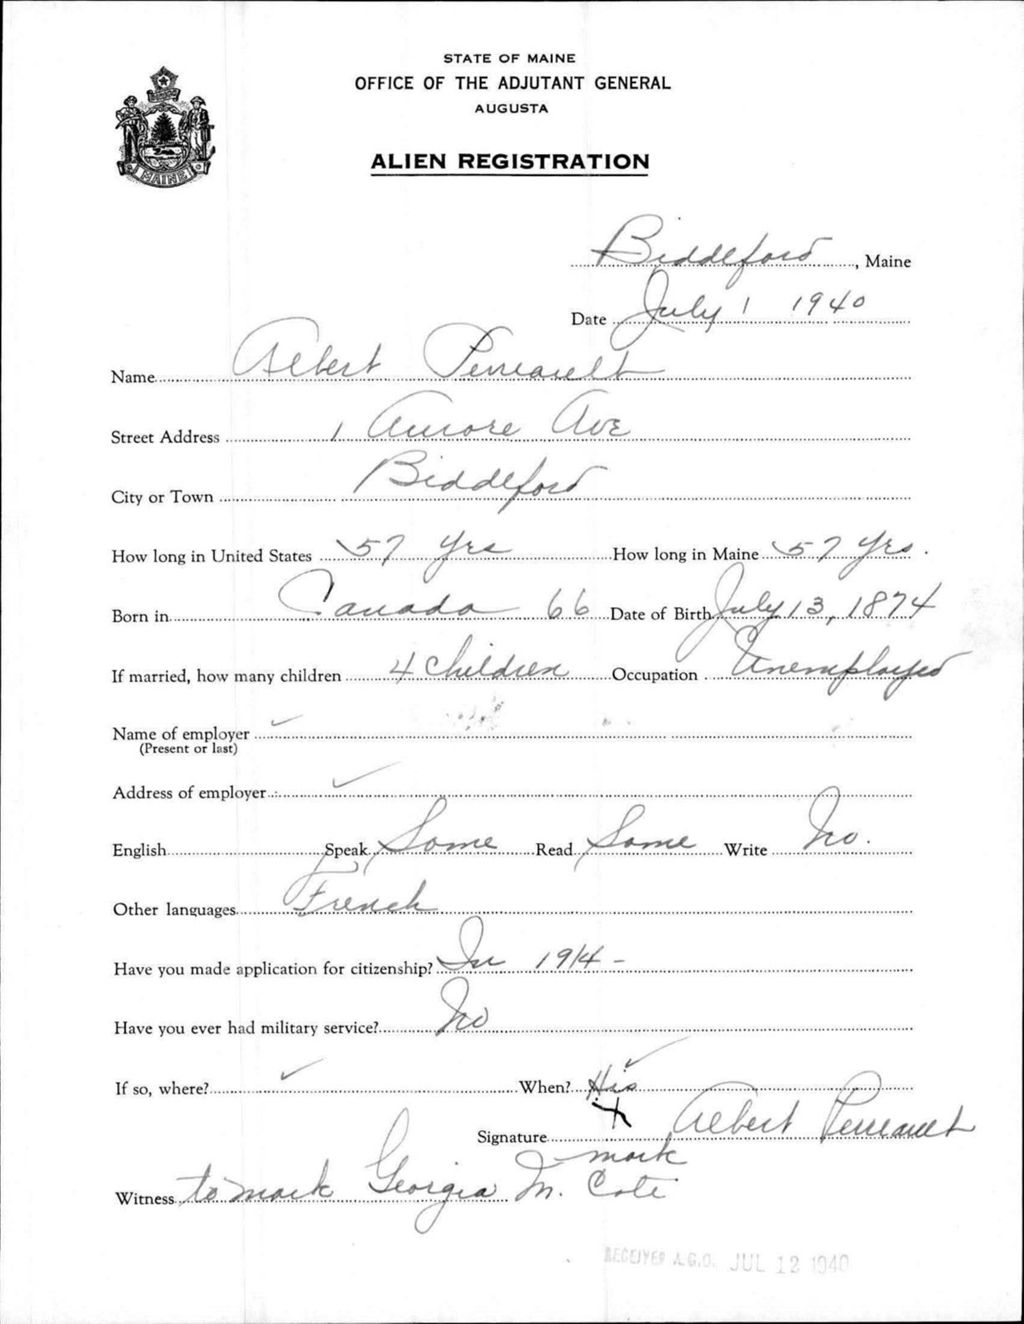 STATE OF MAINE
OFFICE OF THE ADJUTANT GENERAL
AUGUSTA
ALIEN REGISTRATION
MAINE
Biddeford, Maine
Date July 1 1940
Name Albert Perreault
Street Address 1 Aurore Ave
City or Town Biddeford
How long in United States 57 yrs How long in Maine 57 yrs.
Born in Canada 66 Date of Birth July 13, 1874
If married, how many children 4 children Occupation Unemployed
Name of employer
(Present or last)
Address of employer
English Speak Some Read Some Write No.
Other languages French
Have you made application for citizenship? In 1914 -
Have you ever had military service? No
If so, where? When? His
Signature X Albert Perreault
mark
Witness to mark Georgia M. Cote
RECEIVED A.G.O. JUL 12 1940